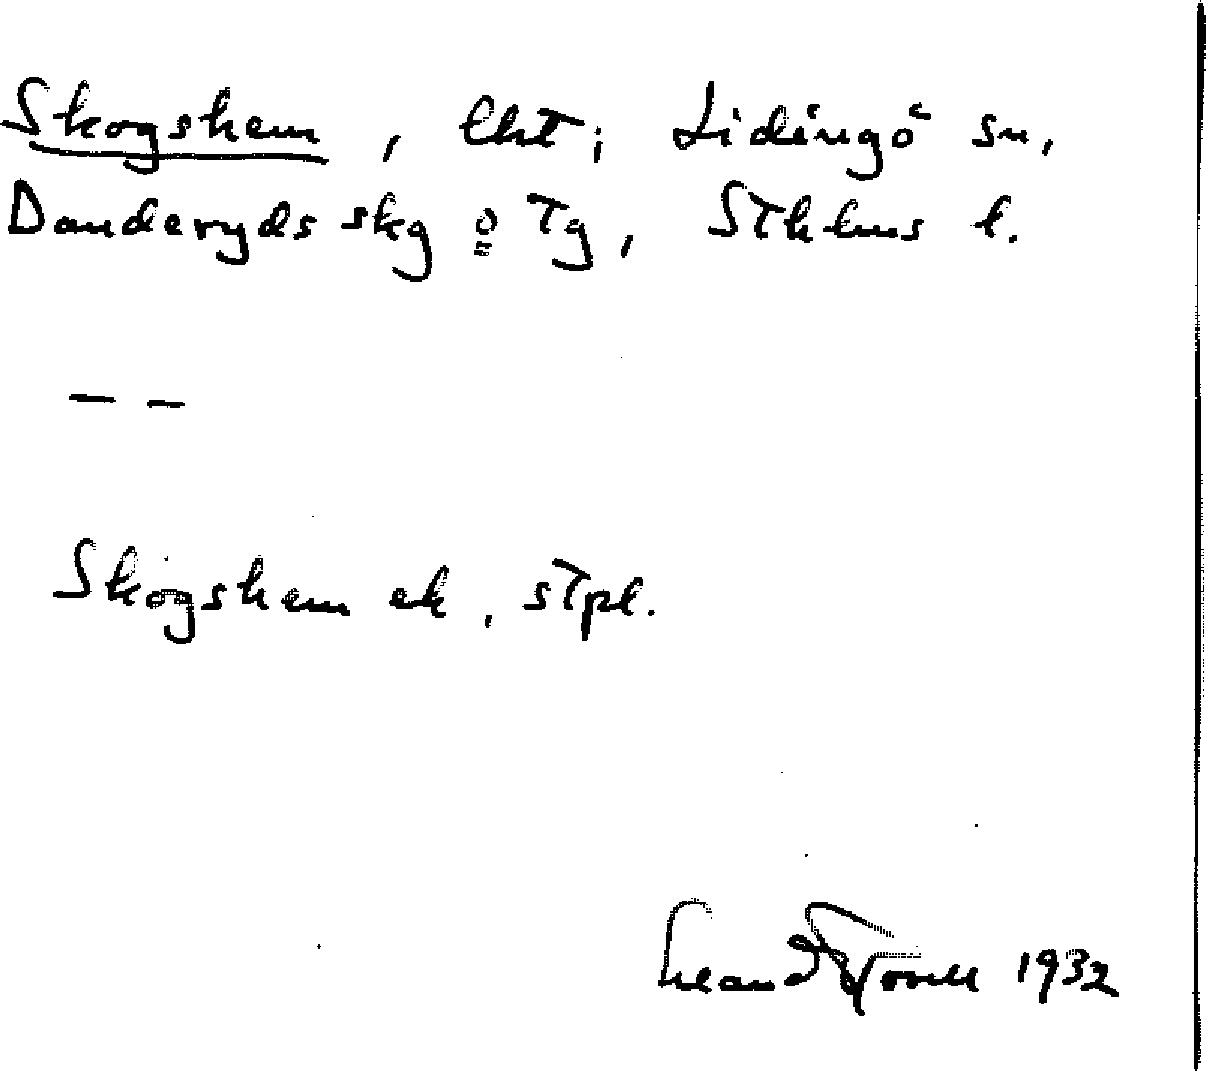 Skogshem, lht, Lidingö sn,
Danderyds skg o Tg, Sthlms l.
— —
Skogshem ek, stpl.
1932